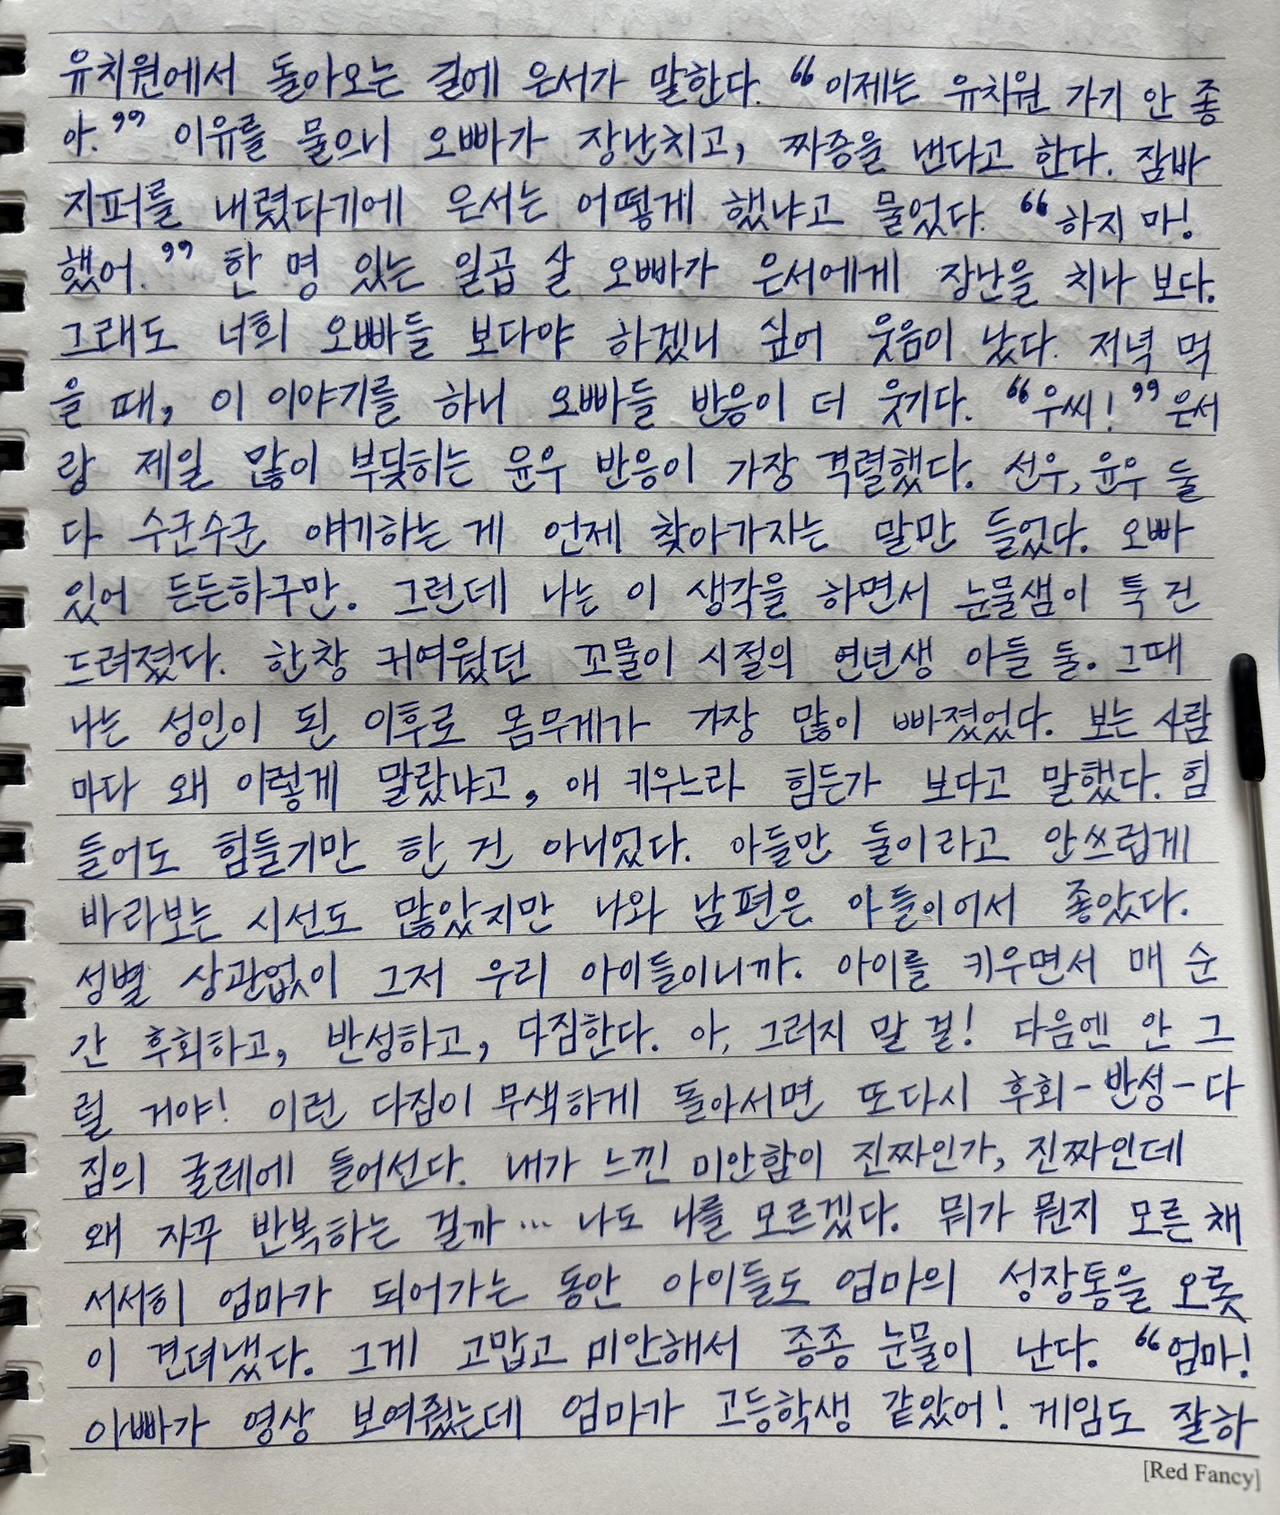 유치원에서 돌아오는 길에 은서가 말한다. “이제는 유치원 가기 안 좋
아.” 이유를 물으니 오빠가 장난치고, 짜증을 낸다고 한다. 잠바
지퍼를 내렸다기에 은서는 어떻게 했냐고 물었다. “하지 마!
했어.” 한 명 있는 일곱 살 오빠가 은서에게 장난을 치나 보다.
그래도 너희 오빠들 보다야 하겠니 싶어 웃음이 났다. 저녁 먹
을 때, 이 이야기를 하니 오빠들 반응이 더 웃기다. “우씨!” 은서
랑 제일 많이 부딪히는 윤우 반응이 가장 격렬했다. 선우, 윤우 둘
다 수군수군 얘기하는 게 언제 찾아가자는 말만 들었다. 오빠
있어 든든하구만. 그런데 나는 이 생각을 하면서 눈물샘이 툭 건
드려졌다. 한창 귀여웠던 꼬물이 시절의 연년생 아들 둘. 그때
나는 성인이 된 이후로 몸무게가 가장 많이 빠졌었다. 보는 사람
마다 왜 이렇게 말랐냐고, 애 키우느라 힘든가 보다고 말했다. 힘
들어도 힘들기만 한 건 아니었다. 아들만 둘이라고 안쓰럽게
바라보는 시선도 많았지만 나와 남편은 아들이어서 좋았다.
성별 상관없이 그저 우리 아이들이니까. 아이를 키우면서 매 순
간 후회하고, 반성하고, 다짐한다. 아, 그러지 말 걸! 다음엔 안 그
럴 거야! 이런 다짐이 무색하게 돌아서면 또다시 후회-반성-다
짐의 굴레에 들어선다. 내가 느낀 미안함이 진짜인가, 진짜인데
왜 자꾸 반복하는 걸까… 나도 나를 모르겠다. 뭐가 뭔지 모른 채
서서히 엄마가 되어가는 동안 아이들도 엄마의 성장통을 오롯
이 견뎌냈다. 그게 고맙고 미안해서 종종 눈물이 난다. “엄마!
아빠가 영상 보여줬는데 엄마가 고등학생 같았어! 게임도 잘하
[Red Fancy]